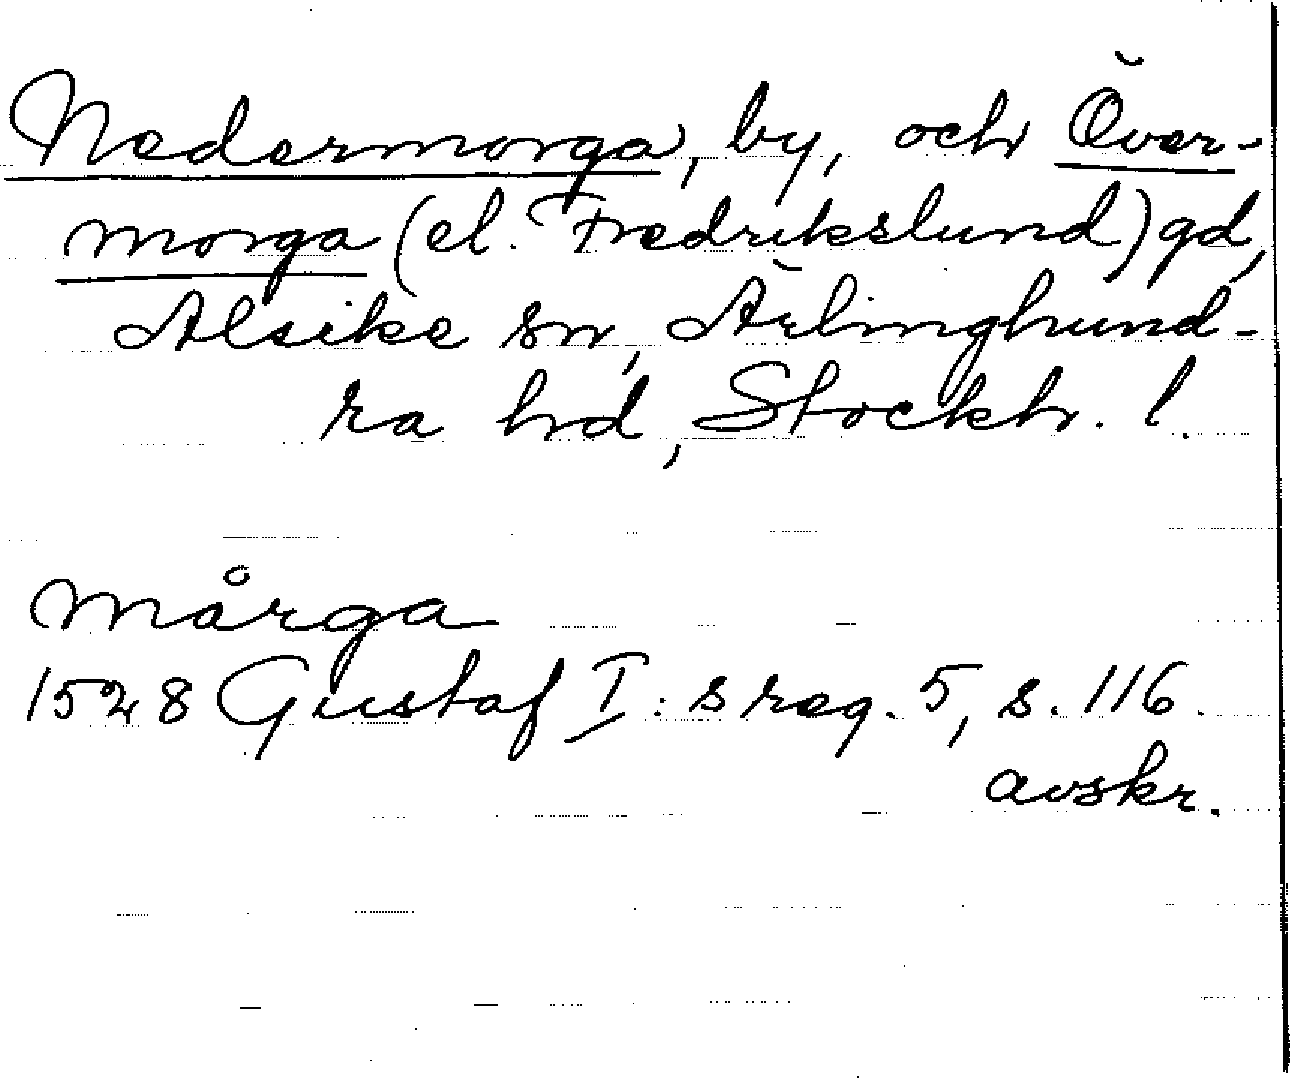 Nedermorga, by, och Över-
morga (el. Fredrikslund) gd,
Alsike sn, Ärlinghund-
ra hd, Stockh. l.
Mårga
1528 Gustaf I: s reg. 5, s. 116.
avskr.